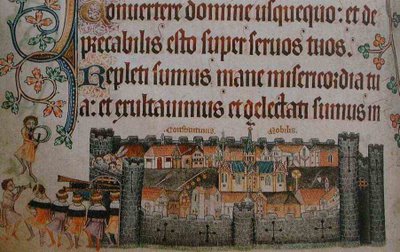 Convertere domine usquequo: et de
precabilis esto super seruos tuos.
Repleti sumus mane misericordia tu
a: et exultauimus et delectati sumus in
nobilis